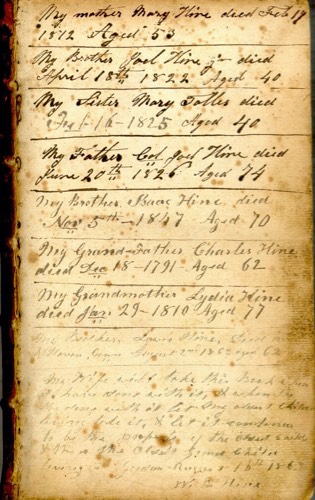 My mother Mary Hine died Feb 19
1812 Aged 53
My Brother Joel Hine jr died
April 18th 1822 Aged 40
My Sister Mary Tolles died
Feb 16 - 1825 Aged 40
My Father Col Joel Hine died
June 20th 1826 Aged 74
My Brother Isaac Hine died
Nov 5th - 1847 Aged 70
My Grand-Father Charles Hine
died Dec 18 - 1791 Aged 62
My Grandmother Lydia Hine
died Jan 29 - 1810 Aged 77
My Brother, Hine, died
August 2nd aged 62
My Wife will take this Book
I have done with it, & when
done with it let my oldest Child
have it, & let it continue
to be the property of the oldest
of the oldest Child
living
Hine